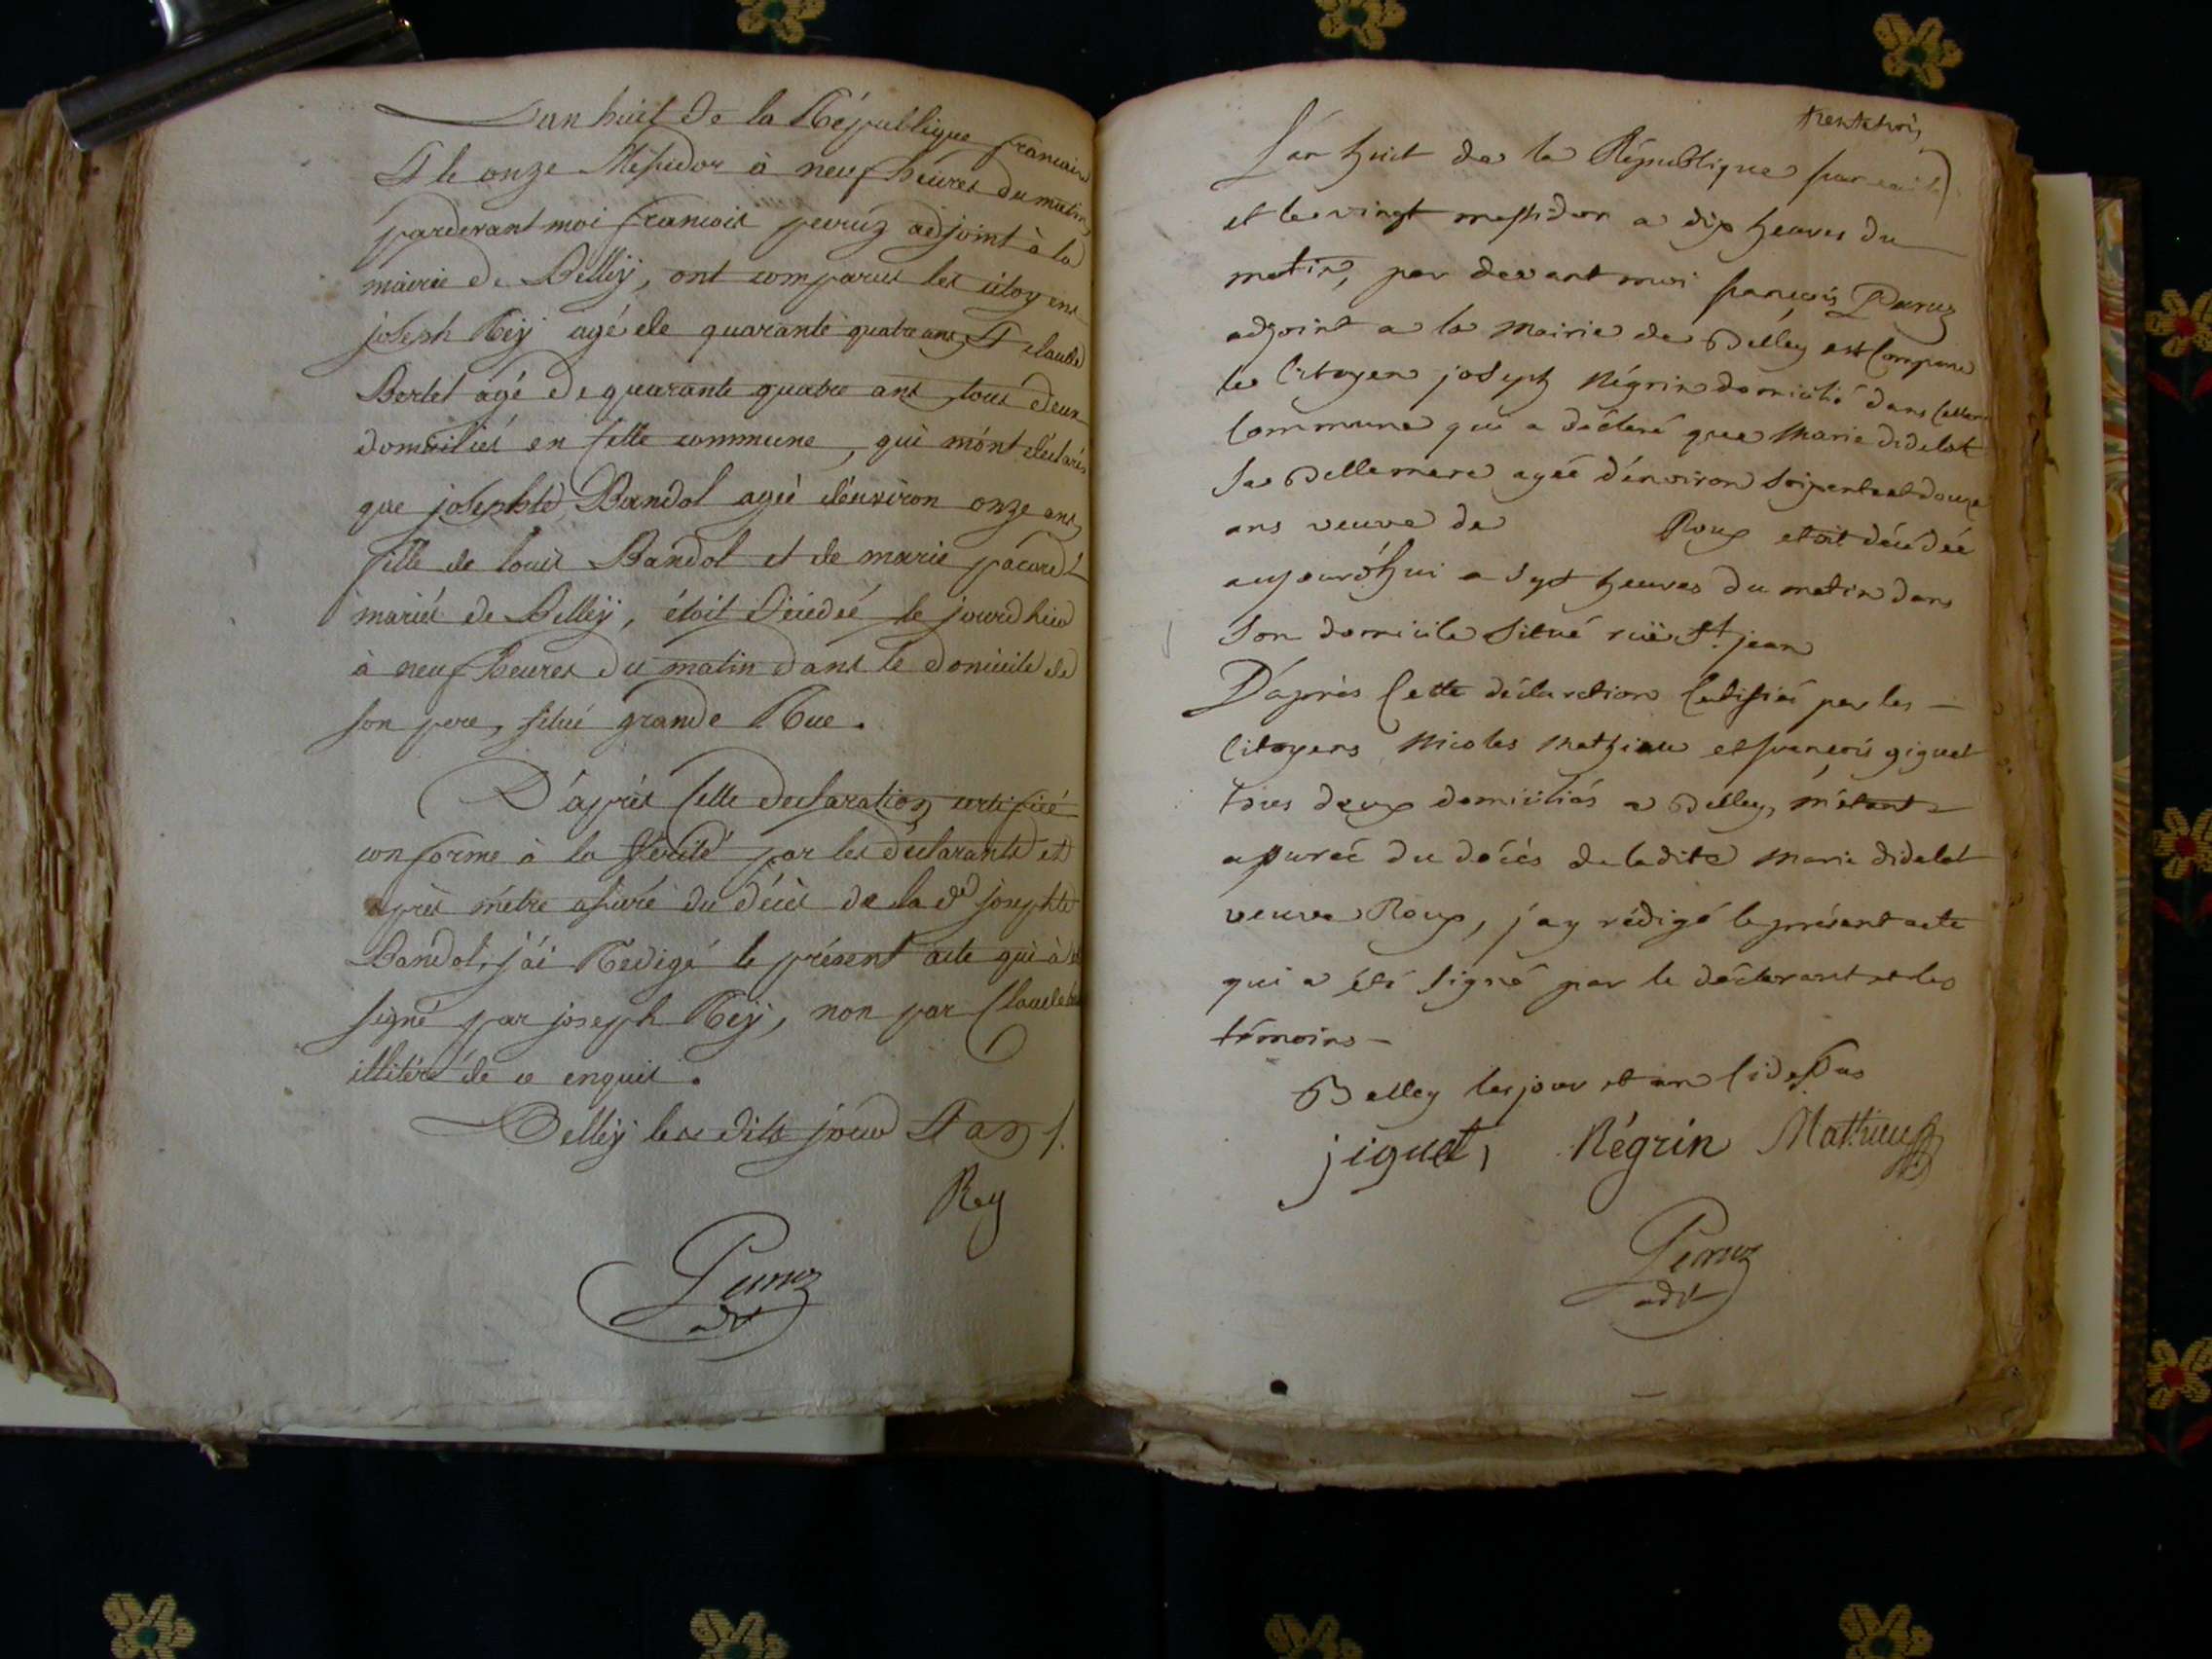 L'an huit de la République francaise
Et le onze Messidor à neuf heures du matin
pardevant moi francois peruz adjoint à la
mairie de Belleÿ, ont comparus les citoyens
joseph Reÿ agé de quarante quatre ans Et claude
Bertet agé de quarante quatre ans tous deux
domiciliés en cette commune, qui m'ont déclarés
que josephte Bandol ageé d'environ onze ans
fille de louis Bandol et de marie pacard
mariés de Belleÿ, étoit décédeé le jourdhui
à neuf heures du matin dans le domicile de
son pere, situé grande Rue.
D'après cette declaration certifieé
conforme à la vérité par les déclarants et
après m'être assuré du décès de la de josephte
Bandol, j'ai Redigé le présent acte qui à été
signé par joseph Reÿ, non par Claude
illitéré de ce enquis.
Belleÿ les dits jour Et an
Rey
Peruz
adt
trentetrois
L'an huit de la République francaise
et le vingt messidor a dix heures du
matin, par devant moi françois Peruz
adjoint a la Mairie de Belley est Comparu
le Citoyen joseph Négrin domicilié dans Cette
Commune qui a déclaré que Marie didelot
Sa Bellemere ageé d'environ soixante et douze
ans veuve de Roux etoit décédeé
aujourd'hui a sept heures du matin dans
Son domicile Situé rüe St. jean
D'après Cette déclaration Certifieé par les
Citoyens Nicolas Mathieu et françois giguet
tous deux domiciliés a Belley, m'étant
assureé du décès de ladite Marie didelot
veuve Roux, j'ay rédigé le présent acte
qui a été signé par le déclarant et les
témoins
Belley les jour et an Cidessus
jiguet, Négrin Mathieu
Peruz
adt